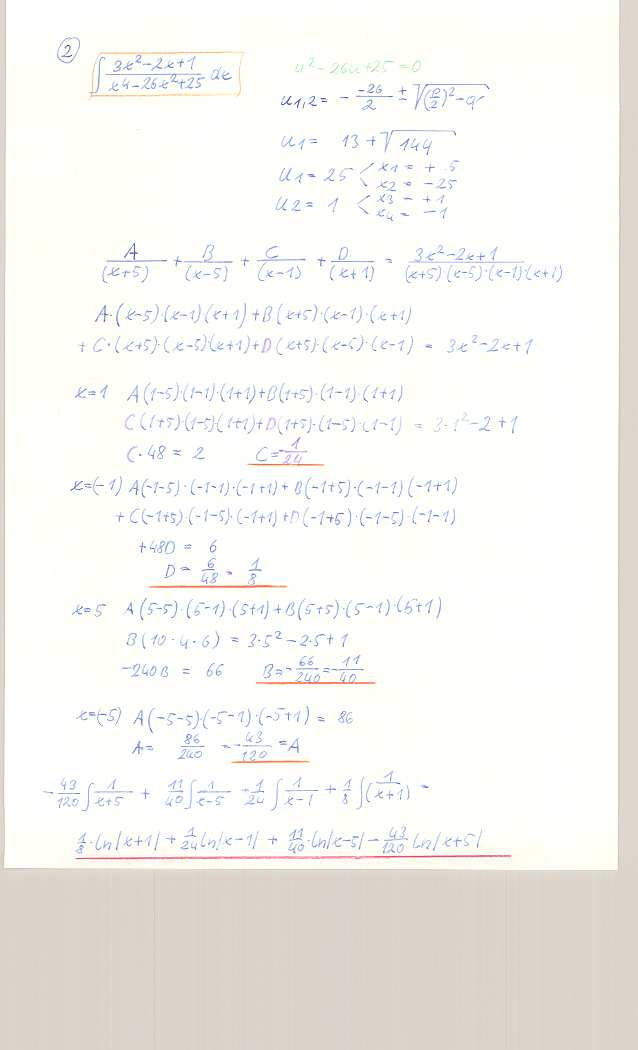 2
∫ 3x²-2x+1 / x4-26x²+25 dx
u²-26u+25=0
u1,2= - -26/2 ± √(p/2)²-q
u1= 13+√144
u1=25 < x1= + 5
x2= -25
u2= 1 < x3 = +1
x4= -1
A/(x+5) + B/(x-5) + C/(x-1) + D/(x+1) = 3x²-2x+1/(x+5)·(x-5)·(x-1)·(x+1)
A·(x-5)·(x-1)(x+1)+B(x+5)·(x-1)·(x+1)
+ C·(x+5)·(x-5)(x+1)+D(x+5)·(x-5)·(x-1) = 3x²-2x+1
x=1 A(1-5)·(1-1)·(1+1)+B(1+5)·(1-1)·(1+1)
C(1+5)(1-5)(1+1)+D(1+5)·(1-5)·(1-1) = 3·1²-2+1
C·48 = 2 C=-1/24
x=(-1) A(-1-5)·(-1-1)·(-1+1)+B(-1+5)·(-1-1)(-1+1)
+ C(-1+5)·(-1-5)·(-1+1)+D(-1+5)·(-1-5)·(-1-1)
+48D = 6
D= 6/48 = 1/8
x=5 A(5-5)·(5-1)·(5+1)+B(5+5)·(5-1)·(5+1)
B(10·4·6) = 3·5²-2·5+1
-240B = 66 B=-66/240=-11/40
x=(-5) A(-5-5)·(-5-1)·(-5+1) = 86
A= 86/240 = -43/120 =A
-43/120 ∫ 1/x+5 + 11/40 ∫ 1/x-5 -1/24 ∫ 1/x-1 + 1/8 ∫(1/x+1) =
1/8·ln|x+1| + 1/24 ln|x-1| + 11/40·ln|x-5| - 43/120 ln|x+5|